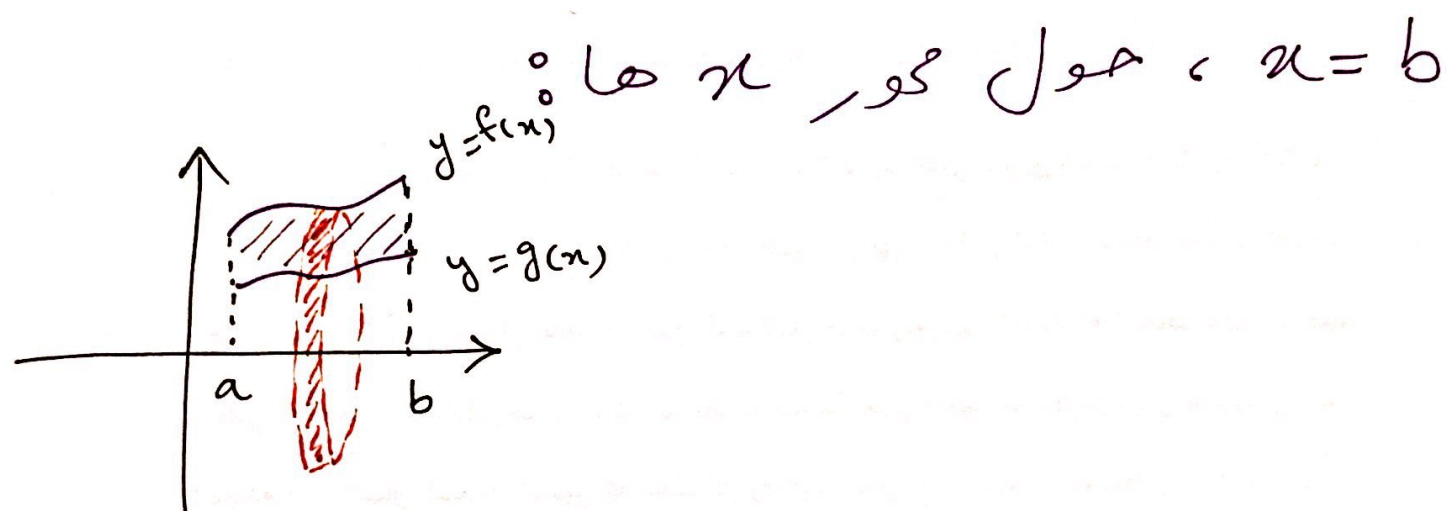 x = b ، حول محور x ها :
y = f(x)
y = g(x)
a
b